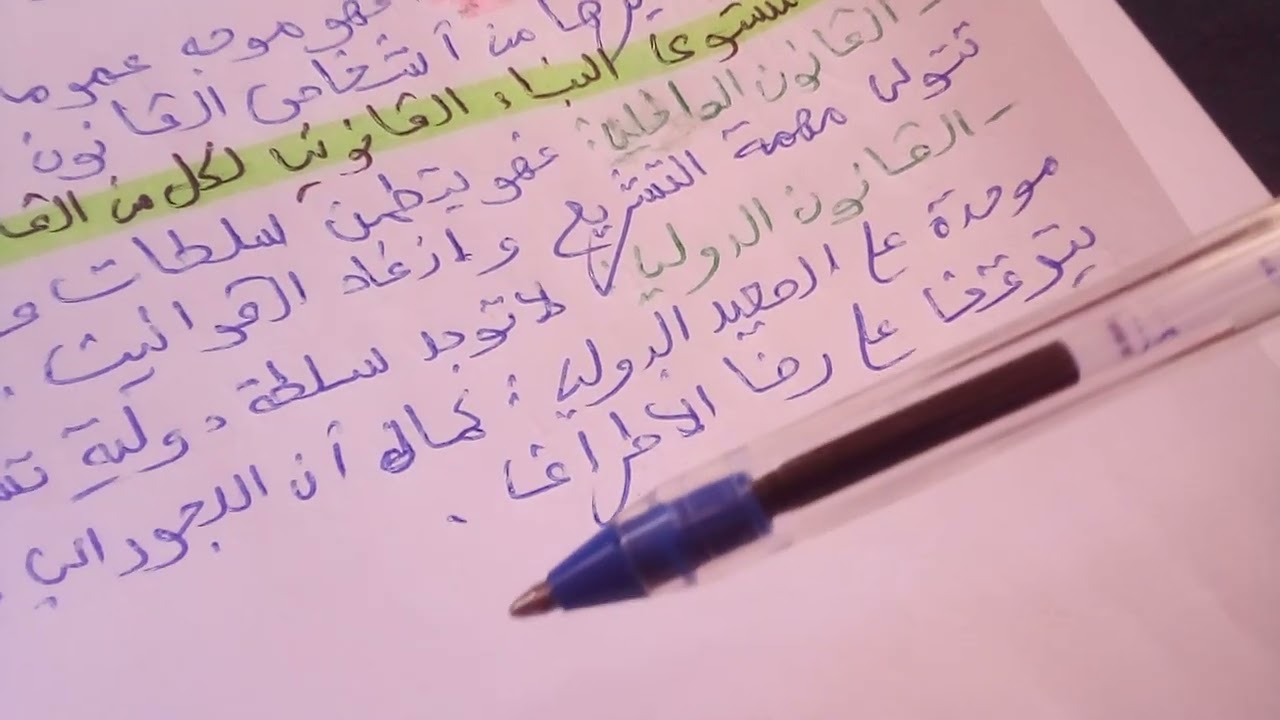 فهو موجه عموما
يرها من أشخاص القانون
مستوى البناء القانوني لكل من القا
- القانون الداخلي: فهو يتضمن سلطات و
تتولى مهمة التشريع وانفاذ القوانين .
- القانون الدولي: لا توجد سلطة دولية تش
موحدة على الصعيد الدولي: كما أن اللجوء الى
يتوقف على رضا الأطراف .